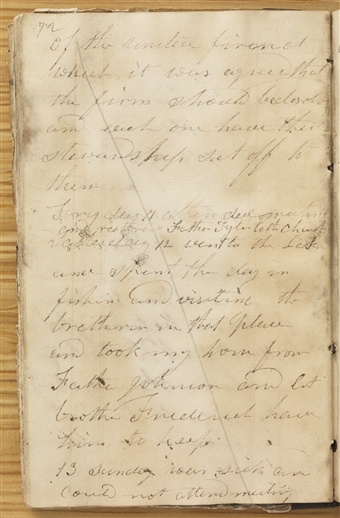 72
of the united firm et
what it was agreed that
the firm should be desolv
and each one have their
stewardship set off to
them
Fryday 11 attended meeting
and restore Father Tyler to the Church
Saterday 12 went to the Lake
and spent the day in
fishing and visiting the
brethren in that place
and took my horse from
Father Johnson and let
brother Frederick have
him to keep
13 Sunday was sick and
could not attend meeting